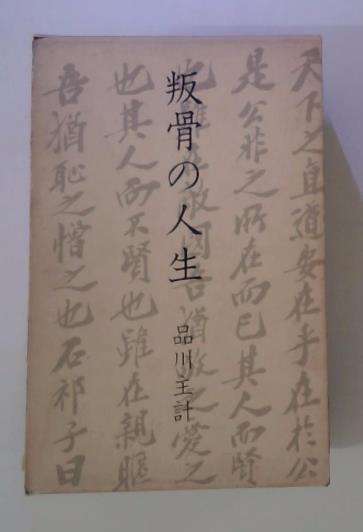 叛骨の人生
品川主計
天下之直道安在乎在於公
是公非之所在而已其人而賢
也雖在敵國吾猶敬之愛之
也其人而不賢也雖在親暱
吾猶恥之憎之也石祁子曰